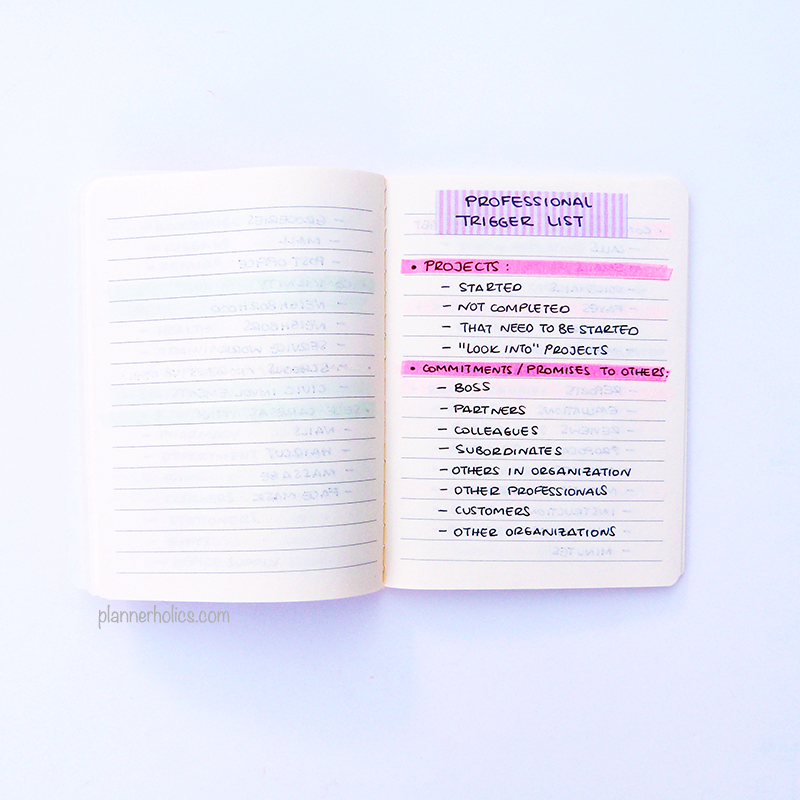 PROFESSIONAL
TRIGGER LIST
• PROJECTS:
- STARTED
- NOT COMPLETED
- THAT NEED TO BE STARTED
- "LOOK INTO" PROJECTS
• COMMITMENTS/PROMISES TO OTHERS:
- BOSS
- PARTNERS
- COLLEAGUES
- SUBORDINATES
- OTHERS IN ORGANIZATION
- OTHER PROFESSIONALS
- CUSTOMERS
- OTHER ORGANIZATIONS
plannerholics.com